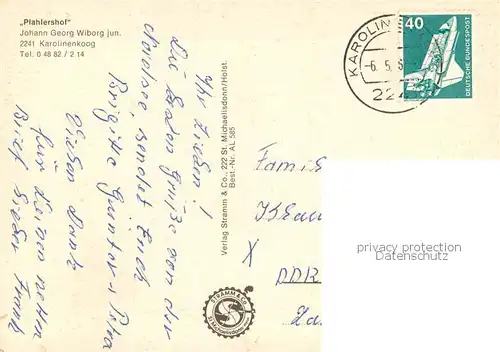 „Pfahlershof"
Johann Georg Wiborg jun.
2241 Karolinenkoog
Tel. 0 48 82 / 2 14
Ihr Lieben!
Die besten Grüße von der
Nordsee, sendet Euch
Brigitte Gunter u. Petra
Vielen Dank
für Deinen netten
Brief lieber Frank
Verlag Stramm & Co., 222 St. Michaelisdonn/Holst.
Best.-Nr. AL 585
KAROLINE
-6.5.
224
40
DEUTSCHE BUNDESPOST
Famil
Klau
X
DDR
STRAMM & Co
St. Michaelisdonn
privacy protection
Datenschutz